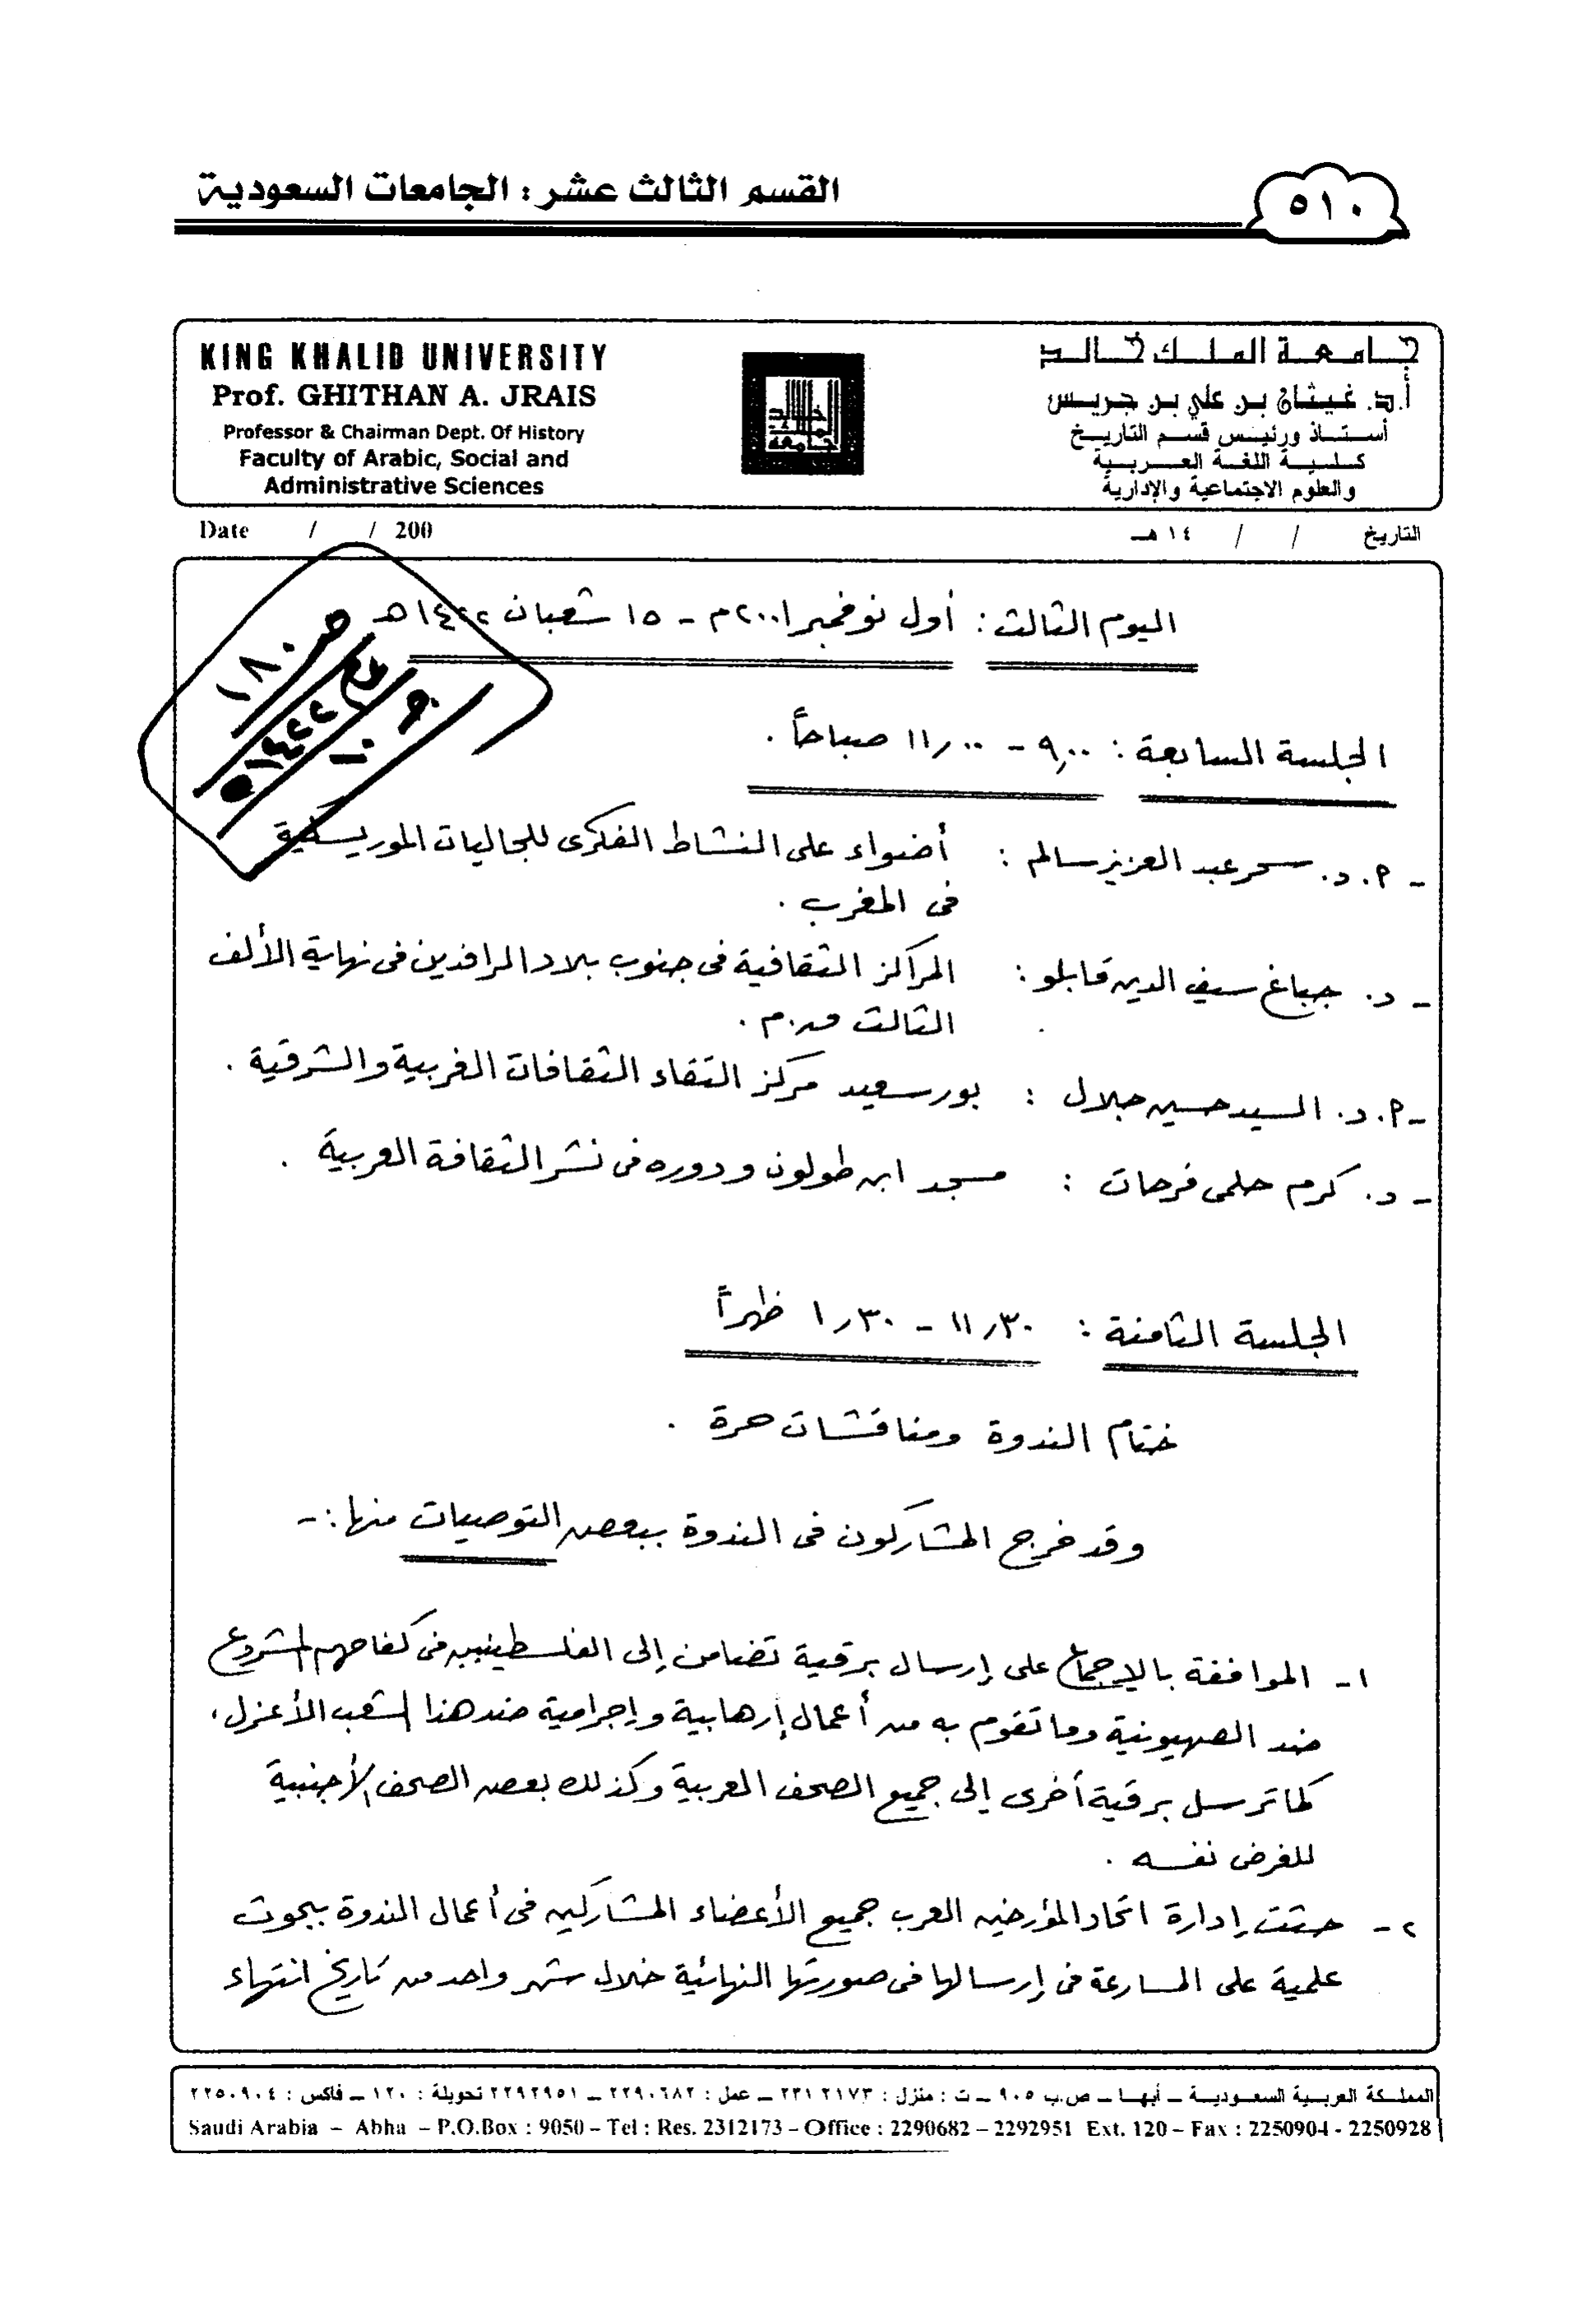 القسم الثالث عشر: الجامعات السعودية
٥١٠
KING KHALID UNIVERSITY
Prof. GHITHAN A. JRAIS
Professor & Chairman Dept. Of History
Faculty of Arabic, Social and
Administrative Sciences
جامعة الملك خالد
أ.د. غيثان بن علي بن جريس
أستاذ ورئيس قسم التاريخ
كلية اللغة العربية
والعلوم الاجتماعية والإدارية
جامعة الملك خالد
Date / / 200
التاريخ / / ١٤هـ
ص ١٨٠
١٤٢٢هـ
اليوم الثالث : أول نوفمبر ٢٠٠١م - ١٥ شعبان ١٤٢٢هـ
الجلسة السابعة : ٩,٠٠ - ١١,٠٠ صباحاً .
- أ.د. سحر عبد العزيز سالم : أضواء على النشاط الفكرى للجاليات الموريسكية
فى المغرب .
- د. جباغ سيف الدين قابلو : المراكز الثقافية فى جنوب بلاد الرافدين فى نهاية الألف
الثالث ق.م .
- أ.د. السيد حسين جلال : بورسعيد مركز التقاء الثقافات الغربية والشرقية .
- د. كرم حلمى فرحات : مسجد ابن طولون ودوره فى نشر الثقافة العربية .
الجلسة الثامنة : ١١,٣٠ - ١,٣٠ ظهراً
ختام الندوة ومناقشات حرة .
وقد خرج المشاركون فى الندوة ببعض التوصيات منها :-
١- الموافقة بالإجماع على إرسال برقية تضامن إلى الفلسطينيين فى كفاحهم المشروع
ضد الصهيونية وما تقوم به من أعمال إرهابية وإجرامية ضد هذا الشعب الأعزل ،
كما ترسل برقية أخرى إلى جميع الصحف العربية وكذلك بعض الصحف الأجنبية
للغرض نفسه .
٢- حثت إدارة اتحاد المؤرخين العرب جميع الأعضاء المشاركين فى أعمال الندوة ببحوث
علمية على المسارعة فى إرسالها فى صورتها النهائية خلال شهر واحد من تاريخ انتهاء
المملكة العربية السعودية – أبها – ص.ب ٩٠٥ – ت : منزل : ٢٣١٢١٧٣ – عمل : ٢٢٩٠٦٨٢ – ٢٢٩٢٩٥١ تحويلة : ١٢٠ – فاكس : ٢٢٥٠٩٠٤
Saudi Arabia – Abha – P.O.Box : 9050 – Tel : Res. 2312173 – Office : 2290682 – 2292951 Ext. 120 – Fax : 2250904 - 2250928